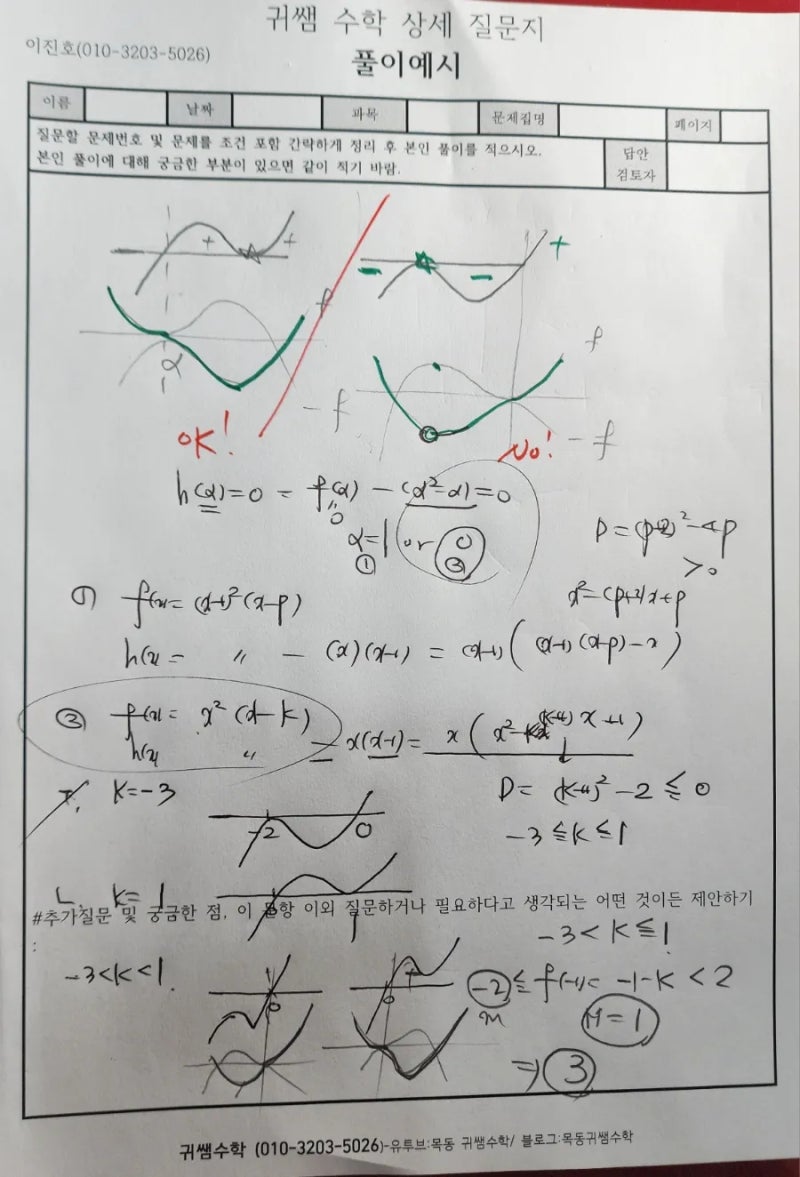 귀쌤 수학 상세 질문지
이진호(010-3203-5026)
풀이예시
이름 날짜 과목 문제집명 페이지
질문할 문제번호 및 문제를 조건 포함 간략하게 정리 후 본인 풀이를 적으시오.
본인 풀이에 대해 궁금한 부분이 있으면 같이 적기 바람.
답안
검토자
+ +
- - +
f
α
-f
OK!
f
-f
No!
h(α)=0 = f(α) - (α²-α)=0
0
α=1 or 0
① ②
D=(p+2)²-4p
>0
① f(x)= (x-1)²(x-p)
x²-(p+2)x+p
h(x) = 〃 - (x)(x-1) = (x-1)((x-1)(x-p)-x)
② f(x)= x²(x-k)
h(x) 〃 - x(x-1) = x(x²-(k+1)x+1)
ㄱ. k=-3
D= (k+1)²-2≦0
-3≦k≦1
-2 0
ㄴ. k=1
#추가질문 및 궁금한 점, 이 문항 이외 질문하거나 필요하다고 생각되는 어떤 것이든 제안하기
:
0 1
-3<k≦1
-3<k<1.
0 0
-2≦f(-1)= -1-k<2
m
M=1
⇒ 3
귀쌤수학 (010-3203-5026)-유투브:목동 귀쌤수학/ 블로그:목동귀쌤수학